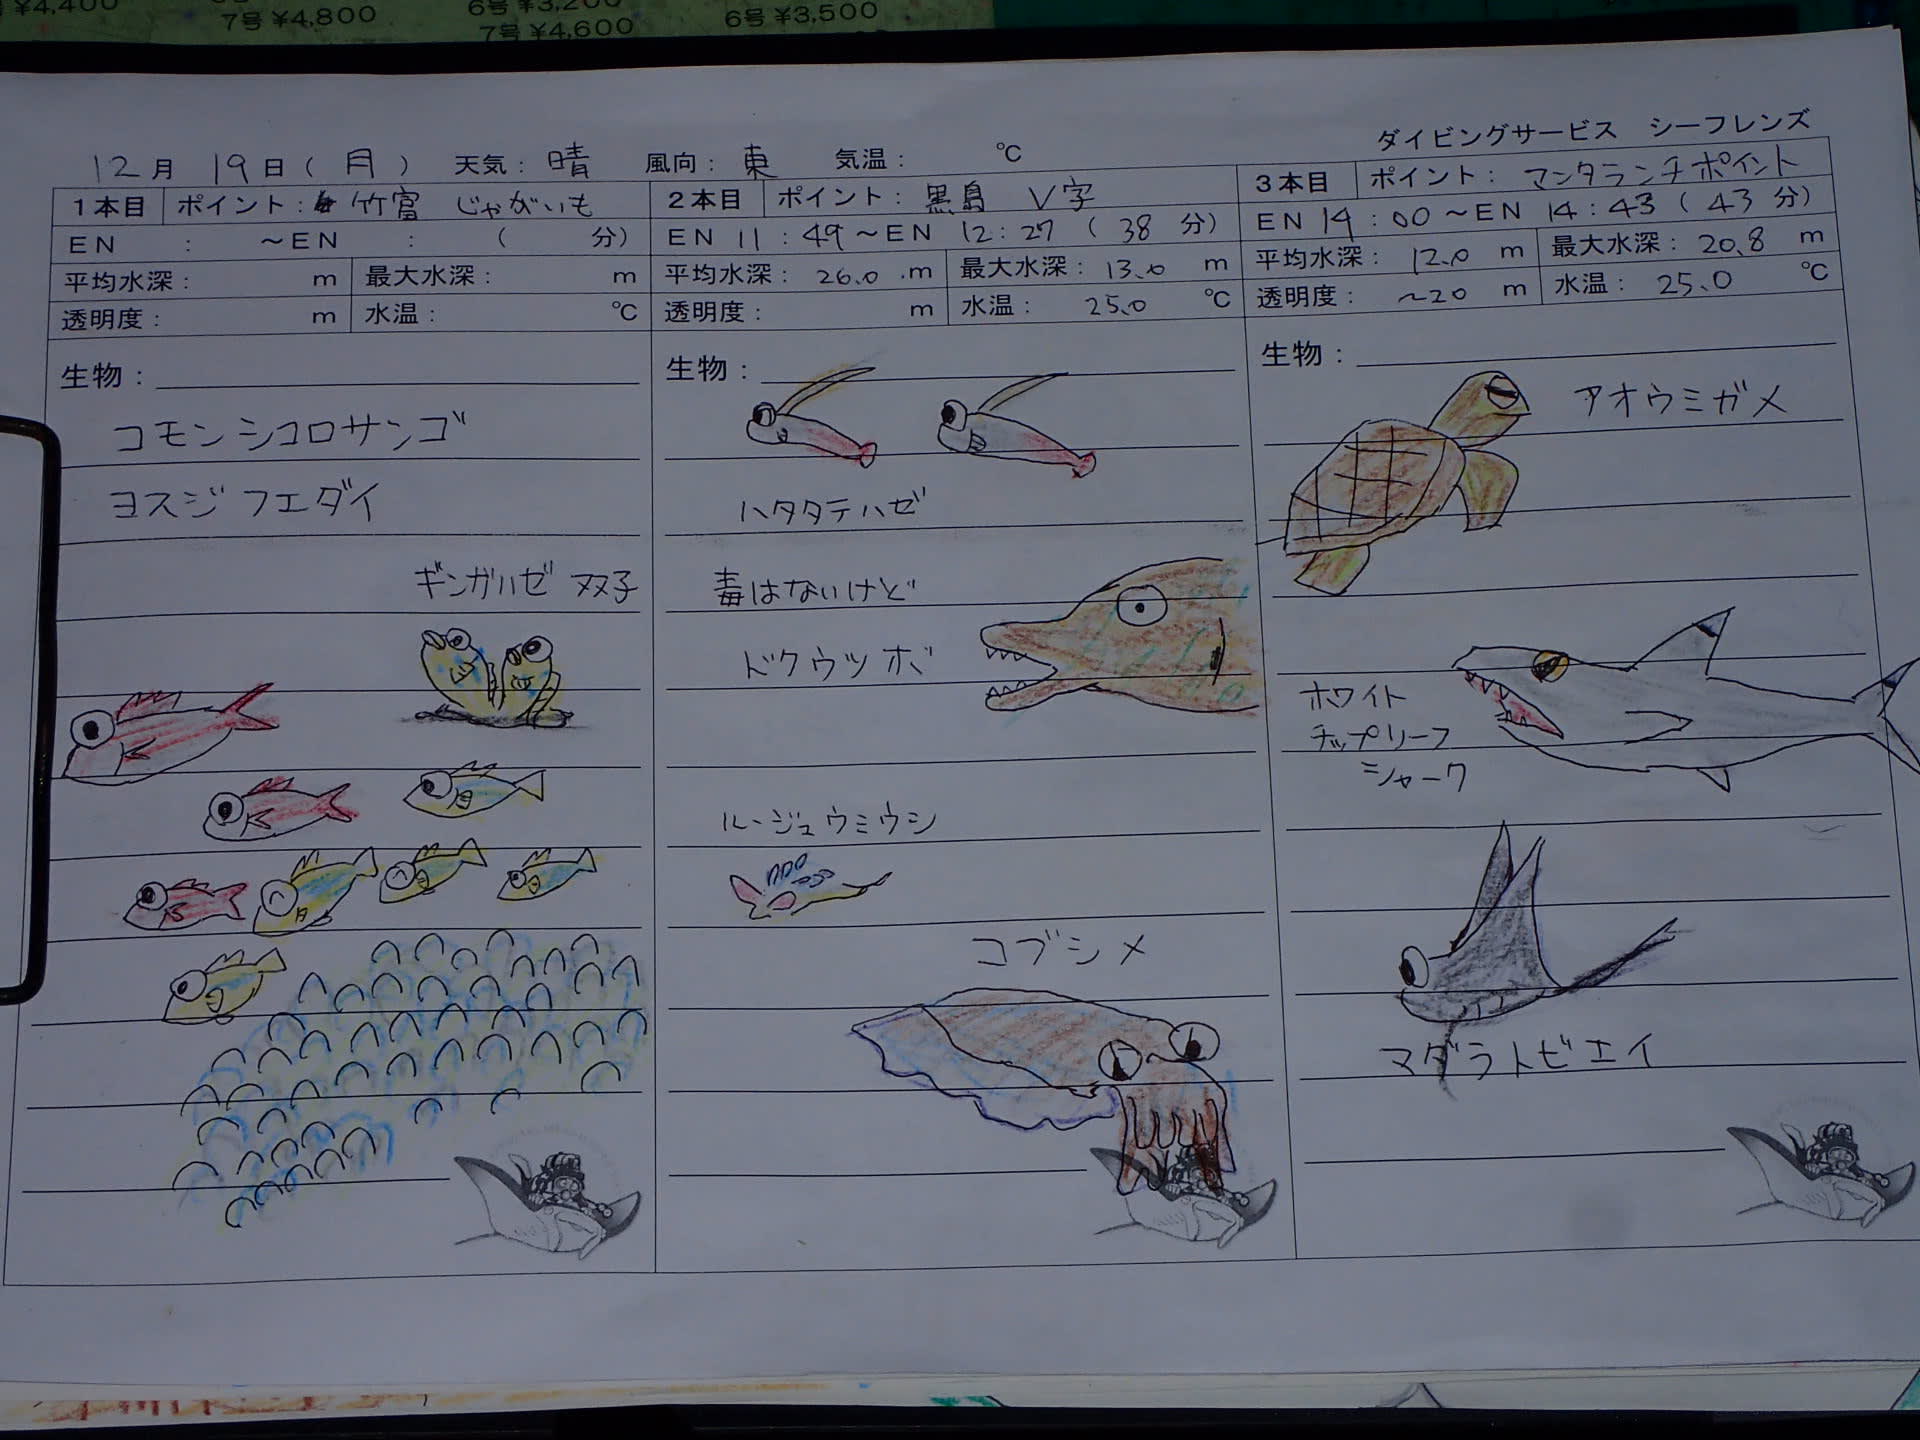 ¥4,400
7号 ¥4,800
6号 ¥3,200
7号 ¥4,600
6号 ¥3,500
ダイビングサービス シーフレンズ
12月 19日(月) 天気:晴 風向:東 気温: ℃
1本目 ポイント: 竹富 じゃがいも
EN : ~EN : ( 分)
平均水深: m 最大水深: m
透明度: m 水温: ℃
生物:
コモンシコロサンゴ
ヨスジフエダイ
ギンガハゼ 双子
2本目 ポイント: 黒島 V字
EN 11:49~EN 12:27(38分)
平均水深: 26.0 m 最大水深: 13.0 m
透明度: m 水温: 25.0 ℃
生物:
ハタタテハゼ
毒はないけど
ドクウツボ
ルージュウミウシ
コブシメ
3本目 ポイント: マンタランチポイント
EN 14:00~EN 14:43(43分)
平均水深: 12.0 m 最大水深: 20.8 m
透明度: ~20 m 水温: 25.0 ℃
生物:
アオウミガメ
ホワイト
チップリーフ
シャーク
マダラトビエイ